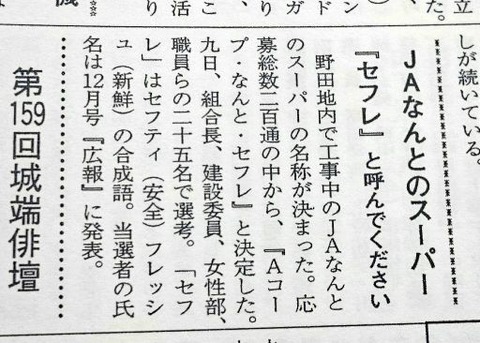 しが続いている。
JAなんとのスーパー
『セフレ』と呼んでください
野田地内で工事中のJAなんと
のスーパーの名称が決まった。応
募総数二百通の中から、『Aコー
プ・なんと・セフレ』と決定した。
九日、組合長、建設委員、女性部、
職員らの二十五名で選考。「セフ
レ」はセフティ（安全）フレッシ
ュ（新鮮）の合成語。当選者の氏
名は12月号『広報』に発表。
第159回城端俳壇